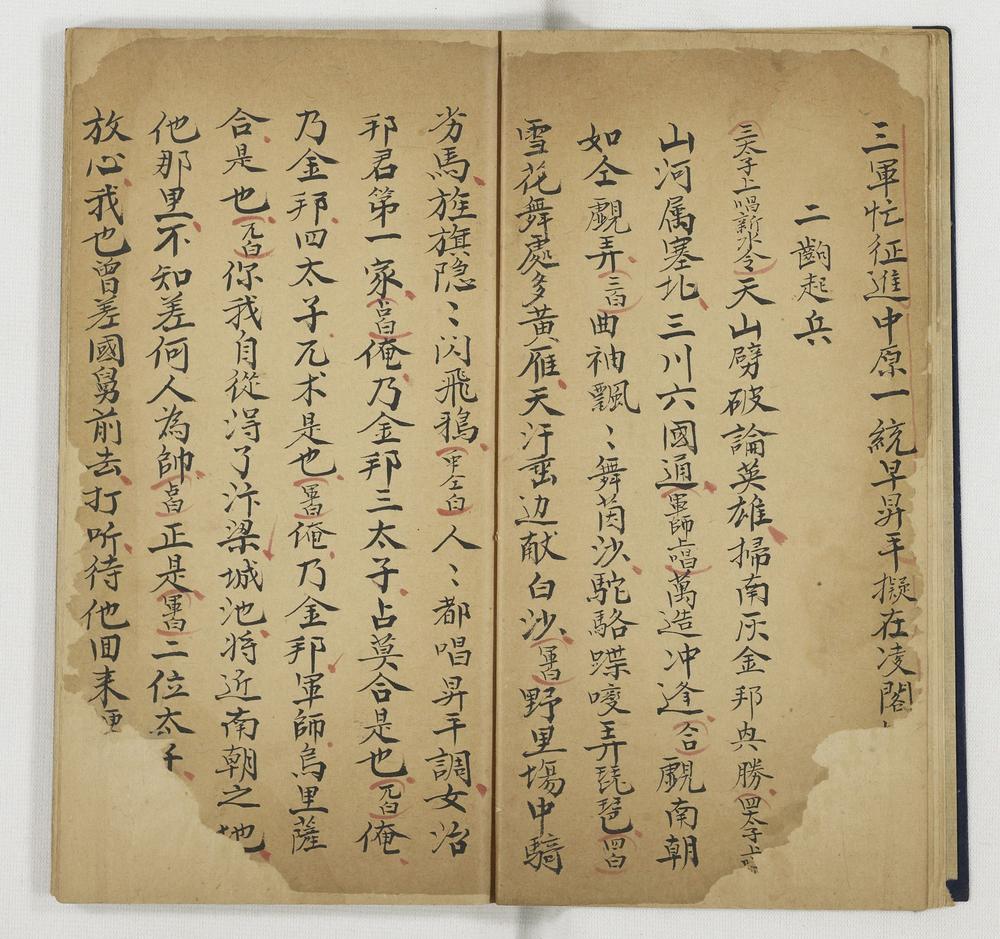 三軍忙征進中原一統早昇平擬在凌閣
二齣起兵
三太子上唱新水令天山劈破論英雄掃南灰金邦央勝四太子上
山河属塞北三川六國通軍師上唱萬造冲逢合覷南朝
如仝覷弄三白曲袖飄〻舞茵沙駝駱蹀嗄弄琵琶四白
雪花舞處多黃雁天汗垂边献白沙軍白野里塲中騎
劣馬旌旗隐〻闪飛鴉甲仝白人〻都唱昇平調女治
邦君第一家占白俺乃金邦三太子占莫合是也兀白俺
乃金邦四太子兀术是也軍白俺乃金邦軍師烏里薩
合是也兀白你我自從淂了汴梁城池将近南朝之地
他那里不知差何人為帥占白正是軍白二位太子
放心我也曾差國舅前去打听待他囬来